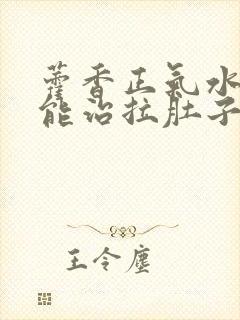 藿香正氣水
能治拉肚子
王令塵